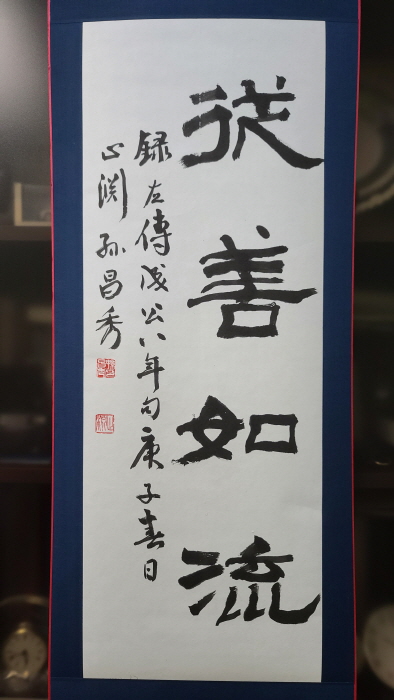 從善如流
録左傳成公八年句庚子春日
止淵孫昌秀